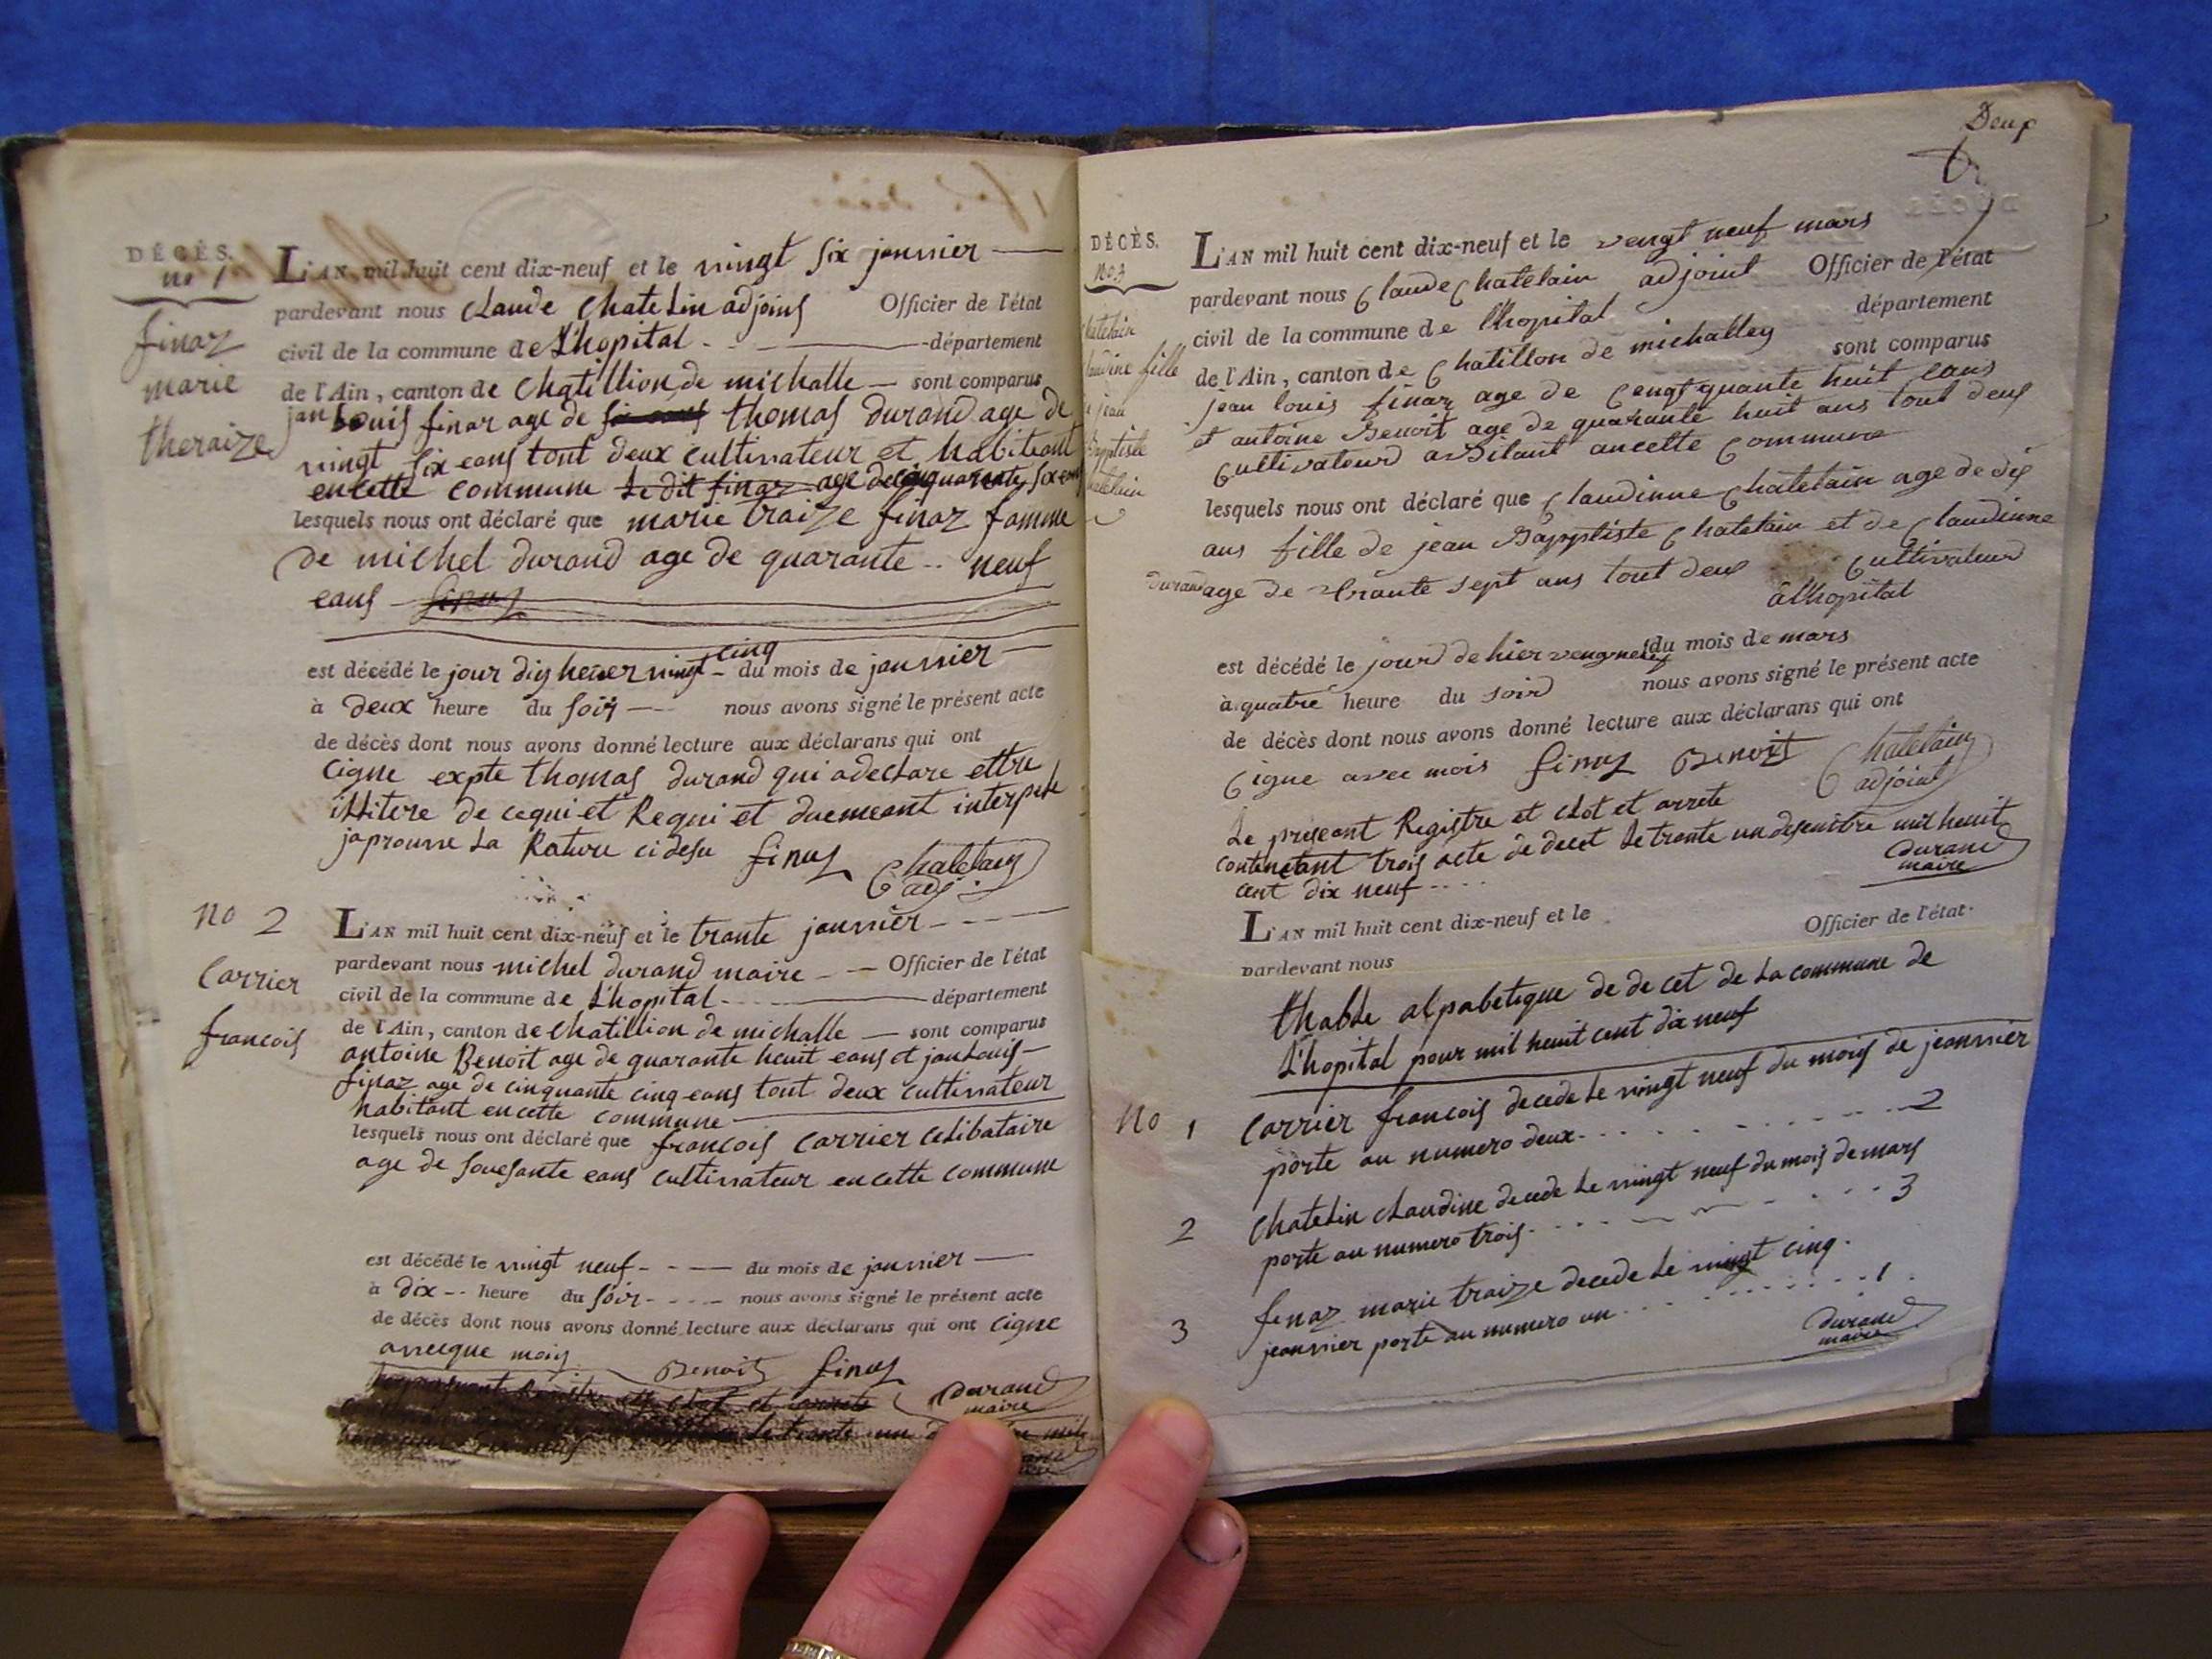 DÉCÈS.
no 1
finaz
marie
theraize
L'AN mil huit cent dix-neuf et le vingt six janvier
pardevant nous Claude Chatelin adjoins Officier de l'état
civil de la commune de L'hopital département
de l'Ain, canton de Chatillion de michalle sont comparus
jan Louis finaz age de thomas durand age de
vingt six eans tout deux cultivateur et habiteant
encette commune Le dit finaz age de cinquante six eans
lesquels nous ont déclaré que marie traize finaz famme
de michel durand age de quarante .. neuf
eans finaz
est décédé le jour digheuer vingt cinq du mois de janvier
à deux heure du soir nous avons signé le présent acte
de décès dont nous avons donné lecture aux déclarans qui ont
cigne expte thomas durand qui adeclare ettre
ittitere de cequi et Requi et duemeant interpete
japrouve La Rature cidesu finaz Chatelain
adj.
no 2
Carrier
francois
L'AN mil huit cent dix-neuf et le trante janvier
pardevant nous michel durand maire Officier de l'état
civil de la commune de L'hopital département
de l'Ain, canton de Chatillion de michalle sont comparus
antoine Benoit age de quarante heuit eans et janLouis
finaz age de cinquante cinq eans tout deux cultivateur
habitant encette commune
lesquels nous ont déclaré que francois Carrier celibataire
age de souesante eans cultivateur encette commune
est décédé le vingt neuf du mois de janvier
à dix heure du soir nous avons signé le présent acte
de décès dont nous avons donné lecture aux déclarans qui ont cigne
avecque mois Benoit finaz
Durand
maire
et clot et arrete
Le trante un
Deux
DÉCÈS.
No. 3
fille
jean
L'AN mil huit cent dix-neuf et le vengt neuf mars
pardevant nous Claude Chatelain adjoint Officier de l'état
civil de la commune de l'hopital département
de l'Ain, canton de Chatillon de michalley sont comparus
jean louis finaz age de cengt quante huit eans
et antoine Benoit age de quarante huit ans tout deux
Cultivateur abitant ancette Commune
lesquels nous ont déclaré que Claudinne Chatelain age de dix
ans fille de jean Bapptiste Chatelain et de Claudinne
durand age de trante sept ans tout deux Cultivateur
à l'hopital
est décédé le jour de hier du mois de mars
à quatre heure du soir nous avons signé le présent acte
de décès dont nous avons donné lecture aux déclarans qui ont
Cigne avec mois finaz Benoit Chatelain
adjoint
Le preseant Registre et clot et arrete
contenant trois acte de decet Le trante un desenibre mil heuit
cent dix neuf
durand
maire
L'AN mil huit cent dix-neuf et le
Officier de l'état
pardevant nous
thable alpabetique de de cet de La commune de
L'hopital pour mil heuit cent dix neuf
No 1 Carrier francois decede Le vingt neuf du mois de jeanvier
porte au numero deux 2
2 Chatelin Claudine decede Le vingt neuf du mois de mars
porte au numero trois 3
3 finaz marie traize decede Le vingt cinq
jeanvier porte au numero un 1
durand
maire